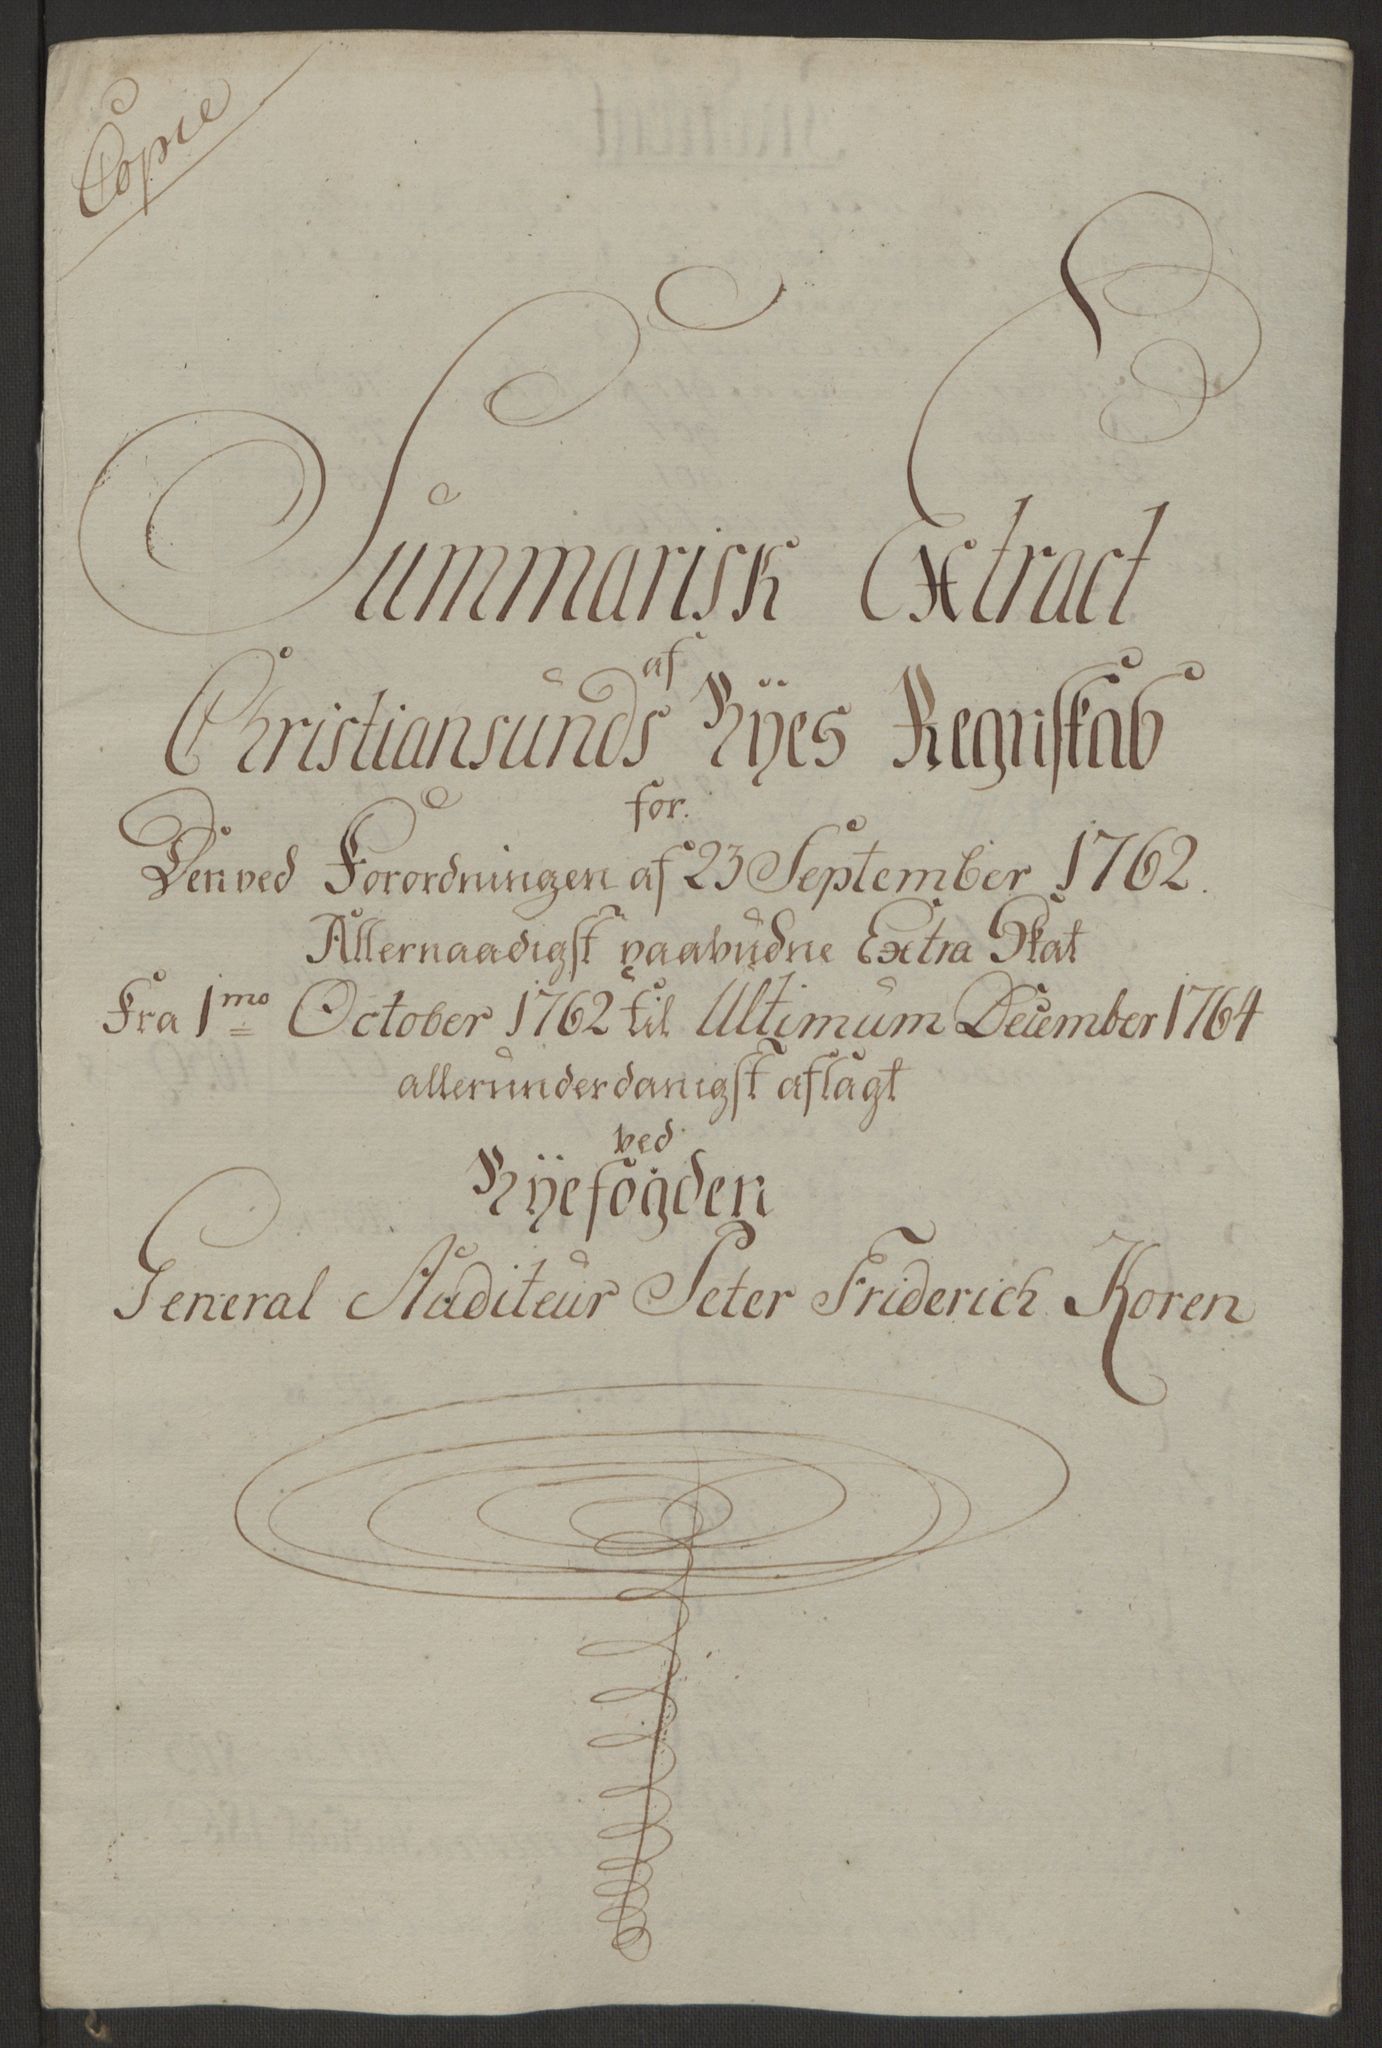 Copie
Summarisk Extract
af
Christiansunds Bÿes Regnskab
for.
Den ved Forordningen af 23 September 1762.
Allernaadigst paabudne Extra Skat
Fra 1mo October 1762 til Ultimum December 1764
allerunderdanigst aflagt
ved
Bÿefogden
General Auditeur Peter Friderich Koren